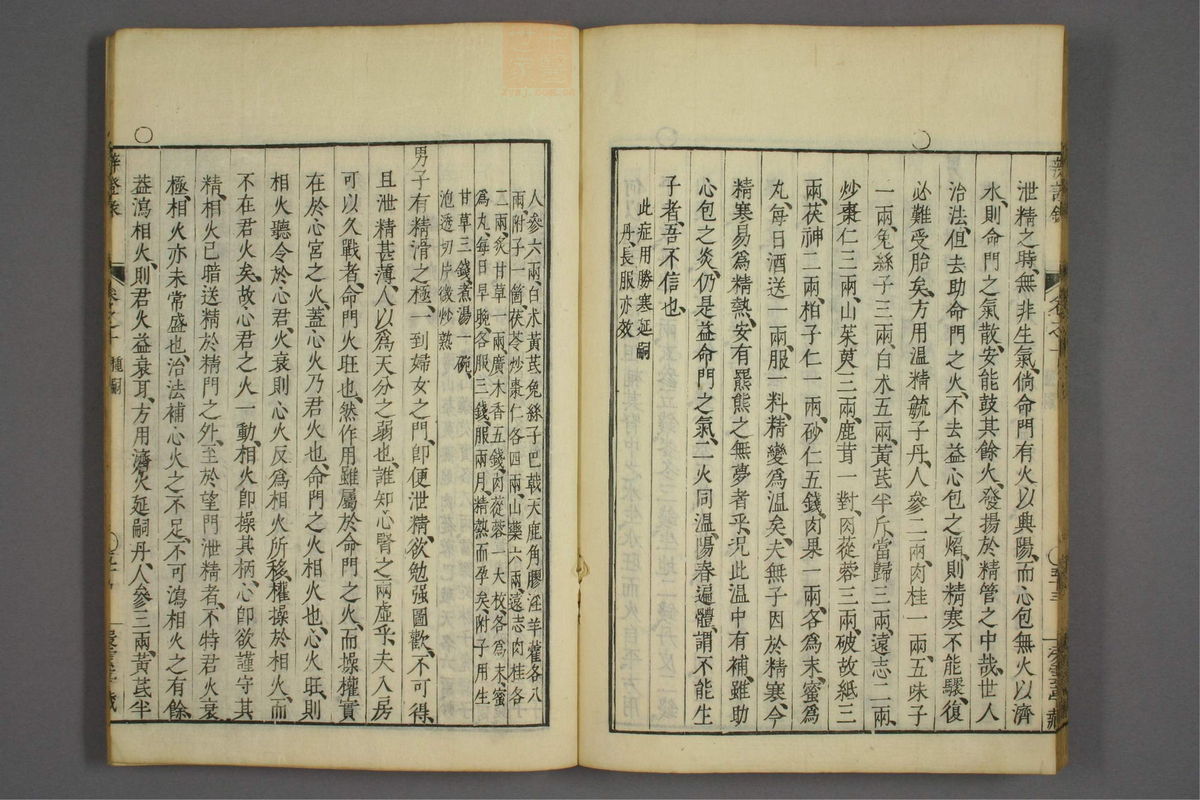 泄精之時、無非生氣、倘命門有火以典陽、而心包無火以濟
水、則命門之氣散、安能鼓其餘火、發揚於精管之中哉、世人
治法、但去助命門之火、不去益心包之焰、則精寒不能驟復
必難受胎矣、方用溫精毓子丹、人參二兩、肉桂一兩、五味子
一兩、兔絲子三兩、白朮五兩、黃芪半斤、當歸三兩、遠志二兩、
炒棗仁三兩、山茱萸三兩、鹿茸一對、肉蓯蓉三兩、破故紙三
兩、茯神二兩、柏子仁一兩、砂仁五錢、肉果一兩、各爲末、蜜爲
丸、每日酒送一兩、服一料、精變爲溫矣、夫無子因於精寒、今
精寒易爲精熱、安有羆熊之無夢者乎、况此溫中有補、雖助
心包之炎、仍是益命門之氣、二火同溫、陽春遍體、謂不能生
子者、吾不信也、
此症用勝寒延嗣
丹、長服亦效
人參六兩、白朮黃芪兔絲子巴戟天鹿角膠淫羊藿各八
兩、附子一箇、茯苓炒棗仁各四兩、山藥六兩、遠志肉桂各
二兩、炙甘草一兩、廣木香五錢、肉蓯蓉一大枚、各爲末、蜜
爲丸、每日早晚各服三錢、服兩月、精熱而孕矣、附子用生
甘草三錢、煮湯一碗、
泡透切片微炒熟
男子有精滑之極、一到婦女之門、卽便泄精、欲勉强圖歡、不可得
且泄精甚薄、人以爲天分之弱也、誰知心腎之兩虛乎、夫入房
可以久戰者、命門火旺也、然作用雖屬於命門之火、而操權實
在於心宮之火、蓋心火乃君火也、命門之火相火也、心火旺、則
相火聽令於心、君火衰則心火反爲相火所移、權操於相火、而
不在君火矣、故心君之火一動、相火卽操其柄、心卽欲謹守其
精、相火已暗送精於精門之外、至於望門泄精者、不特君火衰
極、相火亦未常盛也、治法補心火之不足、不可瀉相火之有餘
蓋瀉相火、則君火益衰耳、方用濟火延嗣丹、人參三兩、黃芪半
卷之十
種嗣